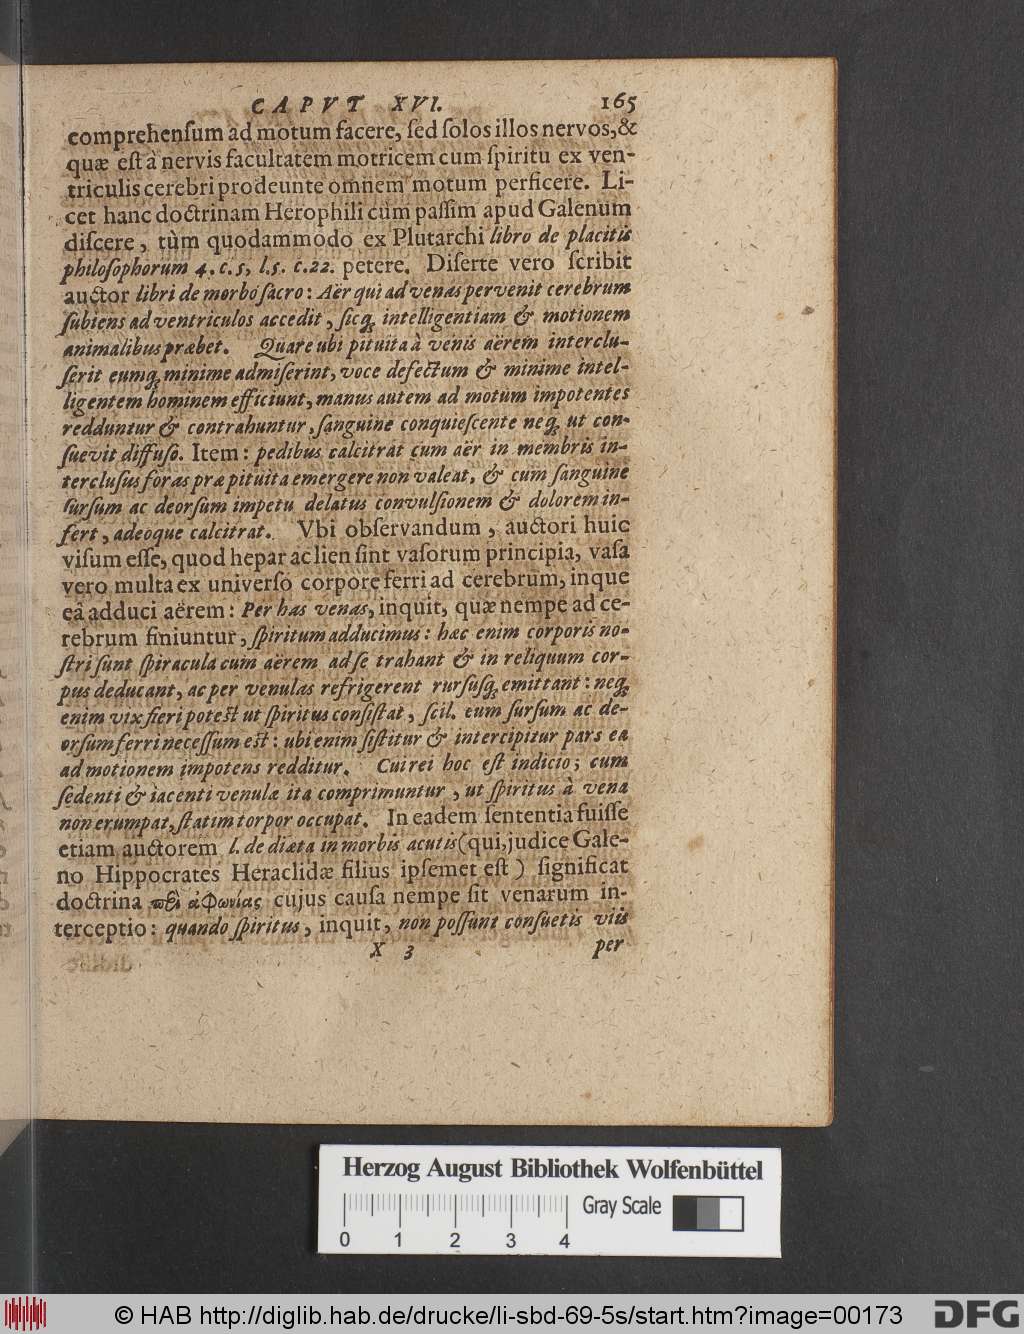 CAPVT XVI. 165
comprehenſum ad motum facere, ſed ſolos illos nervos, &
quæ eſt à nervis facultatem motricem cum ſpiritu ex ven-
triculis cerebri prodeunte omnem motum perficere. Li-
cet hanc doctrinam Herophili cùm paſſim apud Galenum
diſcere, tùm quodammodo ex Plutarchi libro de placitis
philoſophorum 4. c. 5, l. 5. c. 22. petere. Diſerte vero ſcribit
auctor libri de morbo ſacro: Aër qui ad venas pervenit cerebrum
ſubiens ad ventriculos accedit, ſicq; intelligentiam & motionem
animalibus præbet. Quare ubi pituita à venis aërem interclu-
ſerit eumq; minime admiſerint, voce defectum & minime intel-
ligentem hominem efficiunt, manus autem ad motum impotentes
redduntur & contrahuntur, ſanguine conquieſcente neq; ut con-
ſuevit diffuſo. Item: pedibus calcitrat cum aër in membris in-
tercluſus foras præ pituita emergere non valeat, & cum ſanguine
ſurſum ac deorſum impetu delatus convulſionem & dolorem in-
fert, adeoque calcitrat. Vbi obſervandum, auctori huic
viſum eſſe, quod hepar ac lien ſint vaſorum principia, vaſa
vero multa ex univerſo corpore ferri ad cerebrum, inque
eâ adduci aërem: Per has venas, inquit, quæ nempe ad ce-
rebrum finiuntur, ſpiritum adducimus: hæc enim corporis no-
ſtri ſunt ſpiracula cum aërem ad ſe trahant & in reliquum cor-
pus deducant, ac per venulas refrigerent rurſuſq; emittant: neq;
enim vix fieri poteſt ut ſpiritus conſiſtat, ſcil. eum ſurſum ac de-
orſum ferri neceſſum eſt: ubi enim ſiſtitur & intercipitur pars ea
ad motionem impotens redditur. Cui rei hoc eſt indicio; cum
ſedenti & iacenti venulæ ita comprimuntur, ut ſpiritus à vena
non erumpat, ſtatim torpor occupat. In eadem ſententia fuiſſe
etiam auctorem l. de diæta in morbis acutis (qui, judice Gale-
no Hippocrates Heraclidæ filius ipſemet eſt) ſignificat
doctrina περὶ ἀφωνίας cujus cauſa nempe ſit venarum in-
terceptio: quando ſpiritus, inquit, non poſſunt conſuetis viis
X 3 per
Herzog August Bibliothek Wolfenbüttel
Gray Scale
0 1 2 3 4
© HAB http://diglib.hab.de/drucke/li-sbd-69-5s/start.htm?image=00173
DFG